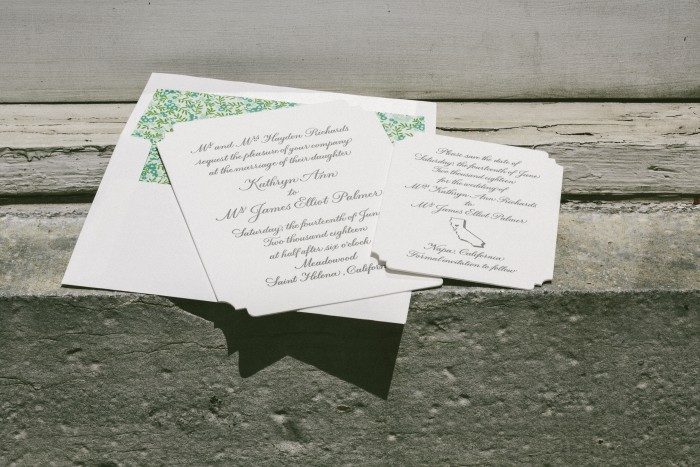 Mr and Mrs Hayden Richards
request the pleasure of your company
at the marriage of their daughter
Kathryn Ann
to
Mr James Elliot Palmer
Saturday, the fourteenth of Jun
Two thousand eighteen
at half after six o'clock
Meadowood
Saint Helena, Californ
Please save the date of
Saturday, the fourteenth of June
Two thousand eighteen
for the wedding of
Kathryn Ann Richards
to
Mr James Elliot Palmer
Napa, California
Formal invitation to follow